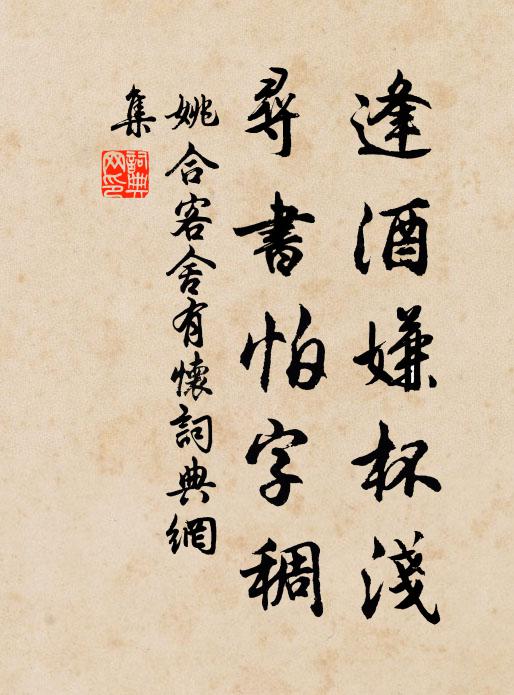 逢酒嫌杯淺
尋書怕字稠
姚合客舍有懷詞典網
集
詞典
网印